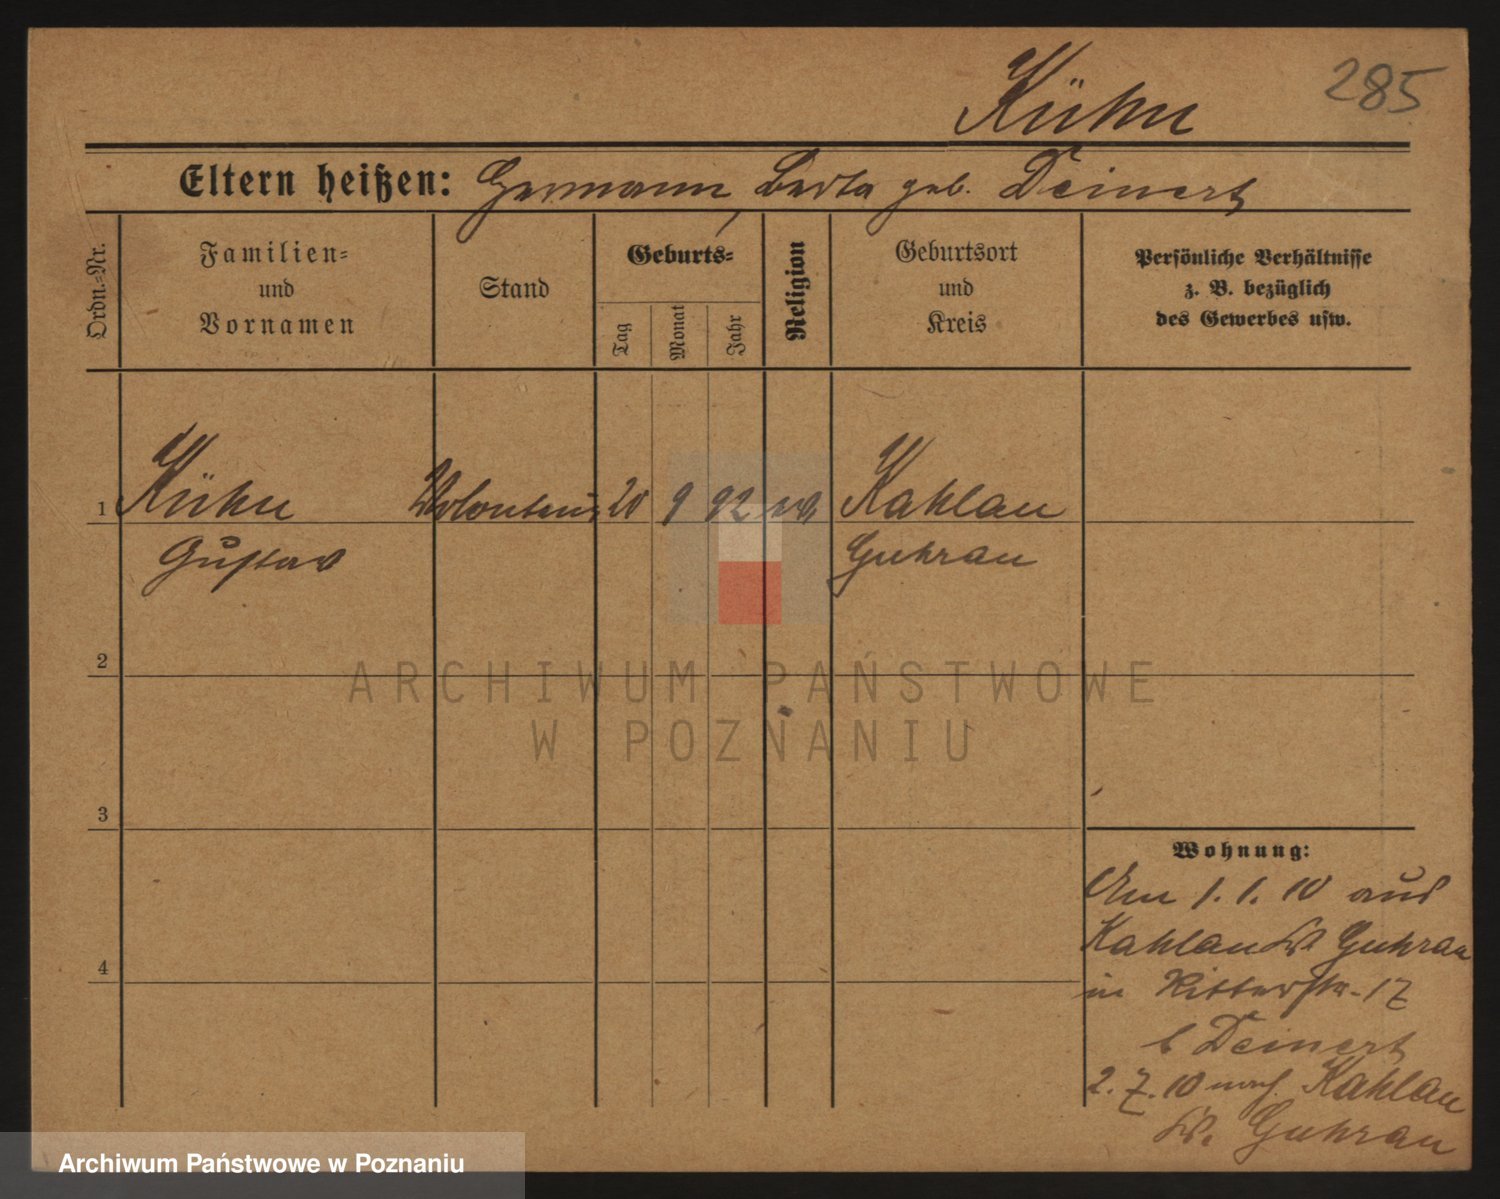 Kühn 285
Eltern heißen: Hermann, Berta geb. Deinert
Ordn.-Nr.
Familien-
und
Vornamen
Stand
Geburts-
Tag
Monat
Jahr
Religion
Geburtsort
und
Kreis
Persönliche Verhältnisse
z. B. bezüglich
des Gewerbes usw.
1 Kühn Volontair 20 9 92 ev Kahlau
Gustav Guhrau
2
3
4
Wohnung:
Am 1.1.10 aus
Kahlau Kr. Guhrau
in Ritterstr. 17
b Deinert
2.7.10 nach Kahlau
Kr. Guhrau
ARCHIWUM PAŃSTWOWE
W POZNANIU
Archiwum Państwowe w Poznaniu